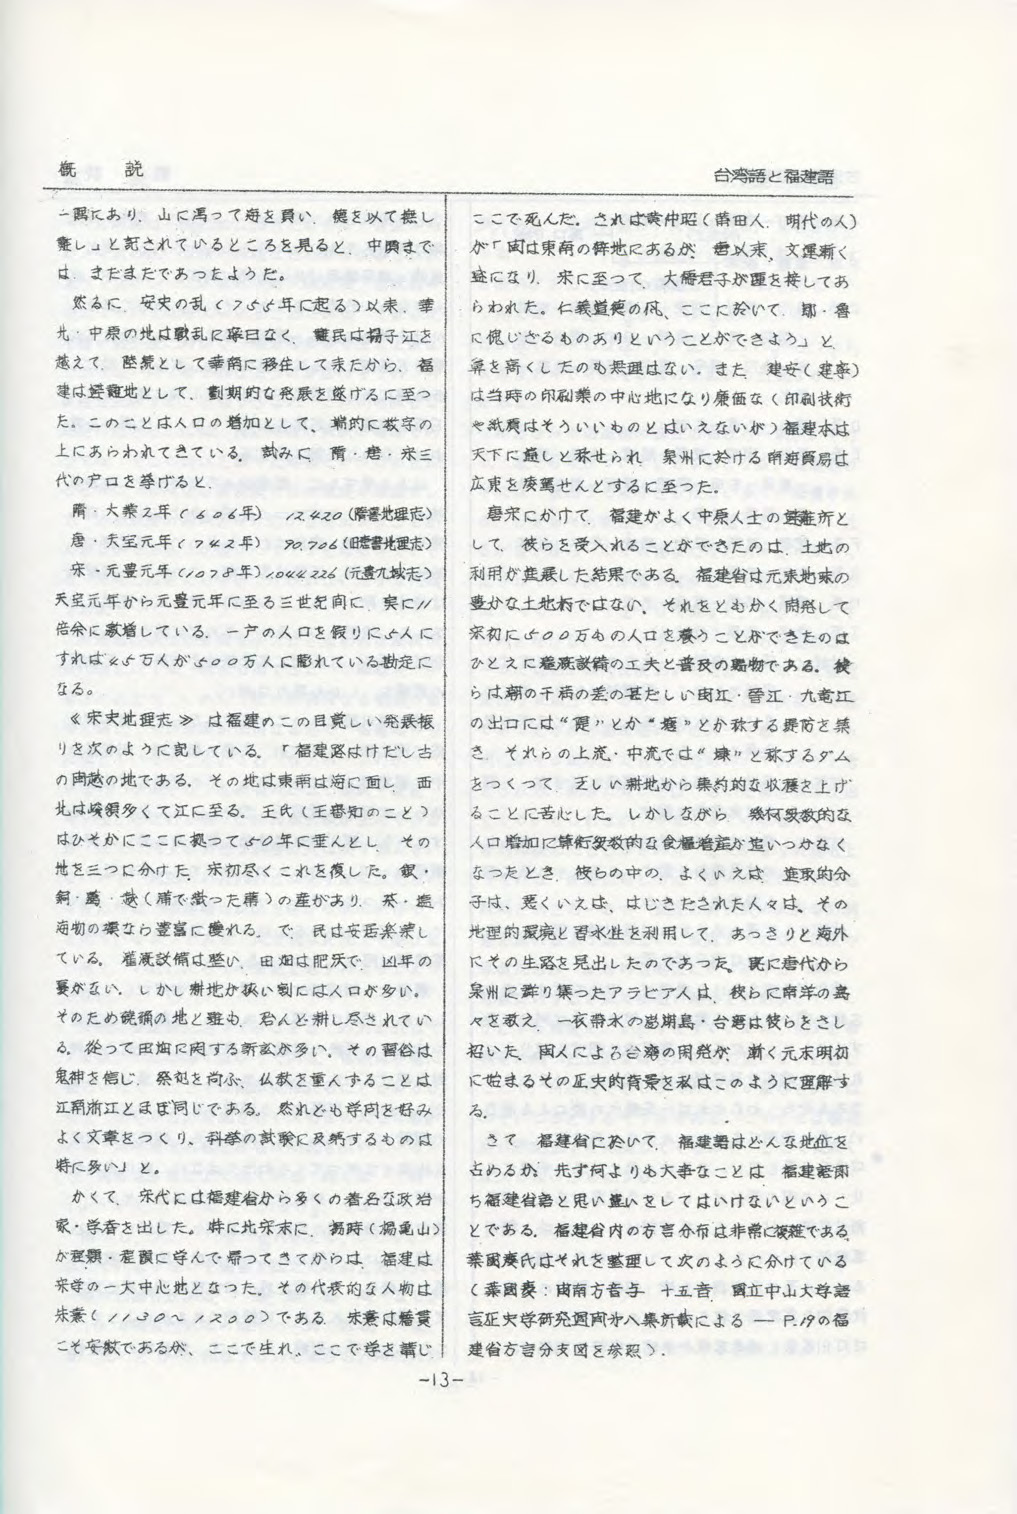 概　説
台湾語と福建語
一隅にあり、山に馮って海を負い、健を以て拠し
難し」と記されているところを見ると、中唐まで
は、まだまだであったようだ。
然るに、安史の乱(755年に起る)以来、華
北・中原の地は戦乱に寧日なく、難民は揚子江を
越えて、陸続として華南に移住して来たから、福
建は避難地として、劃期的な発展を遂げるに至っ
た。このことは人口の増加として、端的に数字の
上にあらわれてきている。試みに、隋・唐・宋三
代の戸口を挙げると、
隋・大業2年(606年)　12,420(隋書地理志)
唐・天宝元年(742年)　90,706(旧唐書地理志)
宋・元豊元年(1078年)1,044,226(元豊九域志)
天宝元年から元豊元年に至る三世紀間に、実に11
倍余に激増している。一戸の人口を假りに5人に
すれば45万人が500万人に膨れている勘定に
なる。
《宋史地理志》は福建のこの目覚しい発展振
りを次のように記している。「福建路はけだし古
の閩越の地である。その地は東南は海に面し、西
北は峻嶺多くて江に至る。王氏(王審知のこと)
はひそかにここに拠って50年に垂んとし、その
地を三つに分けた。宋初尽くこれを復した。銀・
銅・葛・(蒲で織った蓆)の産があり、茶・塩
海物の類なら豊富に穫れる。で、民は安延楽業し
ている。灌漑設備は整い、田畑は肥沃で、凶年の
憂がない。しかし耕地が狭い割には人口が多い。
そのため磽确の地と雖も、殆んど耕し尽されてい
る。従って田畑に関する訴訟が多い。その習俗は
鬼神を信じ、祭祀を尚ぶ、仏教を重んずることは
江南浙江とほぼ同じである。然れども学問を好み
よく文章をつくり、科挙の試験に及第するものは
特に多い」と。
かくて、宋代には福建省から多くの著名な政治
家・学者を出した。特に北宋末に、楊時(楊亀山)
が程顥・程頤に学んで帰ってきてからは、福建は
宋学の一大中心地となった。その代表的な人物は
朱熹(1130〜1200)である。朱熹は籍貫
こそ安徽であるが、ここで生れ、ここで学を講じ
ここで死んだ。されば黄仲昭(莆田人、明代の人)
が「閩は東南の僻地にあるが、唐以末、文運漸く
盛になり、宋に至って、大儒君子が踵を接してあ
らわれた。仁義道徳の風、ここに於いて、鄒・魯
に愧じざるものありということができよう」と、
鼻を高くしたのも無理はない。また、建安(建寧)
は当時の印刷業の中心地になり廉価な(印刷技術
や紙質はそういいものとはいえないが)福建本は
天下に遍しと称せられ、泉州に於ける南海貿易は
広東を凌駕せんとするに至った。
唐宋にかけて、福建がよく中原人士の避難所と
して、彼らを受入れることができたのは、土地の
利用が進展した結果である。福建省は元来地味の
豊かな土地柄ではない。それをともかく開発して
宋初に500万もの人口を養うことができたのは
ひとえに灌漑設備の工夫と普及の賜物である。彼
らは潮の干満の差の甚だしい閩江・晋江・九竜江
の出口には“”とか“”とか称する堤防を築
き、それらの上流・中流では“”と称するダム
をつくって、乏しい耕地から集約的な収穫を上げ
ることに苦心した。しかしながら、幾何級数的な
人口増加に算術級数的な食糧増産が追いつかなく
なったとき、彼らの中の、よくいえば、進取的分
子は、悪くいえば、はじきだされた人々は、その
地理的環境と習水性を利用して、あっさりと海外
にその生路を見出したのであった。既に唐代から
泉州に群り集ったアラビア人は、彼らに南洋の島
々を教え、一衣帯水の澎湖島・台湾は彼らをさし
招いた。閩人による台湾の開発が、漸く元末明初
に始まるその正史的背景を私はこのように理解す
る。
さて、福建省に於いて、福建語はどんな地位を
占めるか。先ず何よりも大事なことは、福建語即
ち福建省語と思い違いをしてはいけないというこ
とである。福建省内の方言分布は非常に複雑である。
葉国慶氏はそれを整理して次のように分けている
(葉国慶：閩南方音与　十五音、国立中山大学語
言歴史学研究週間第八集所載による — P.19の福
建省方言分支図を参照)。
-13-